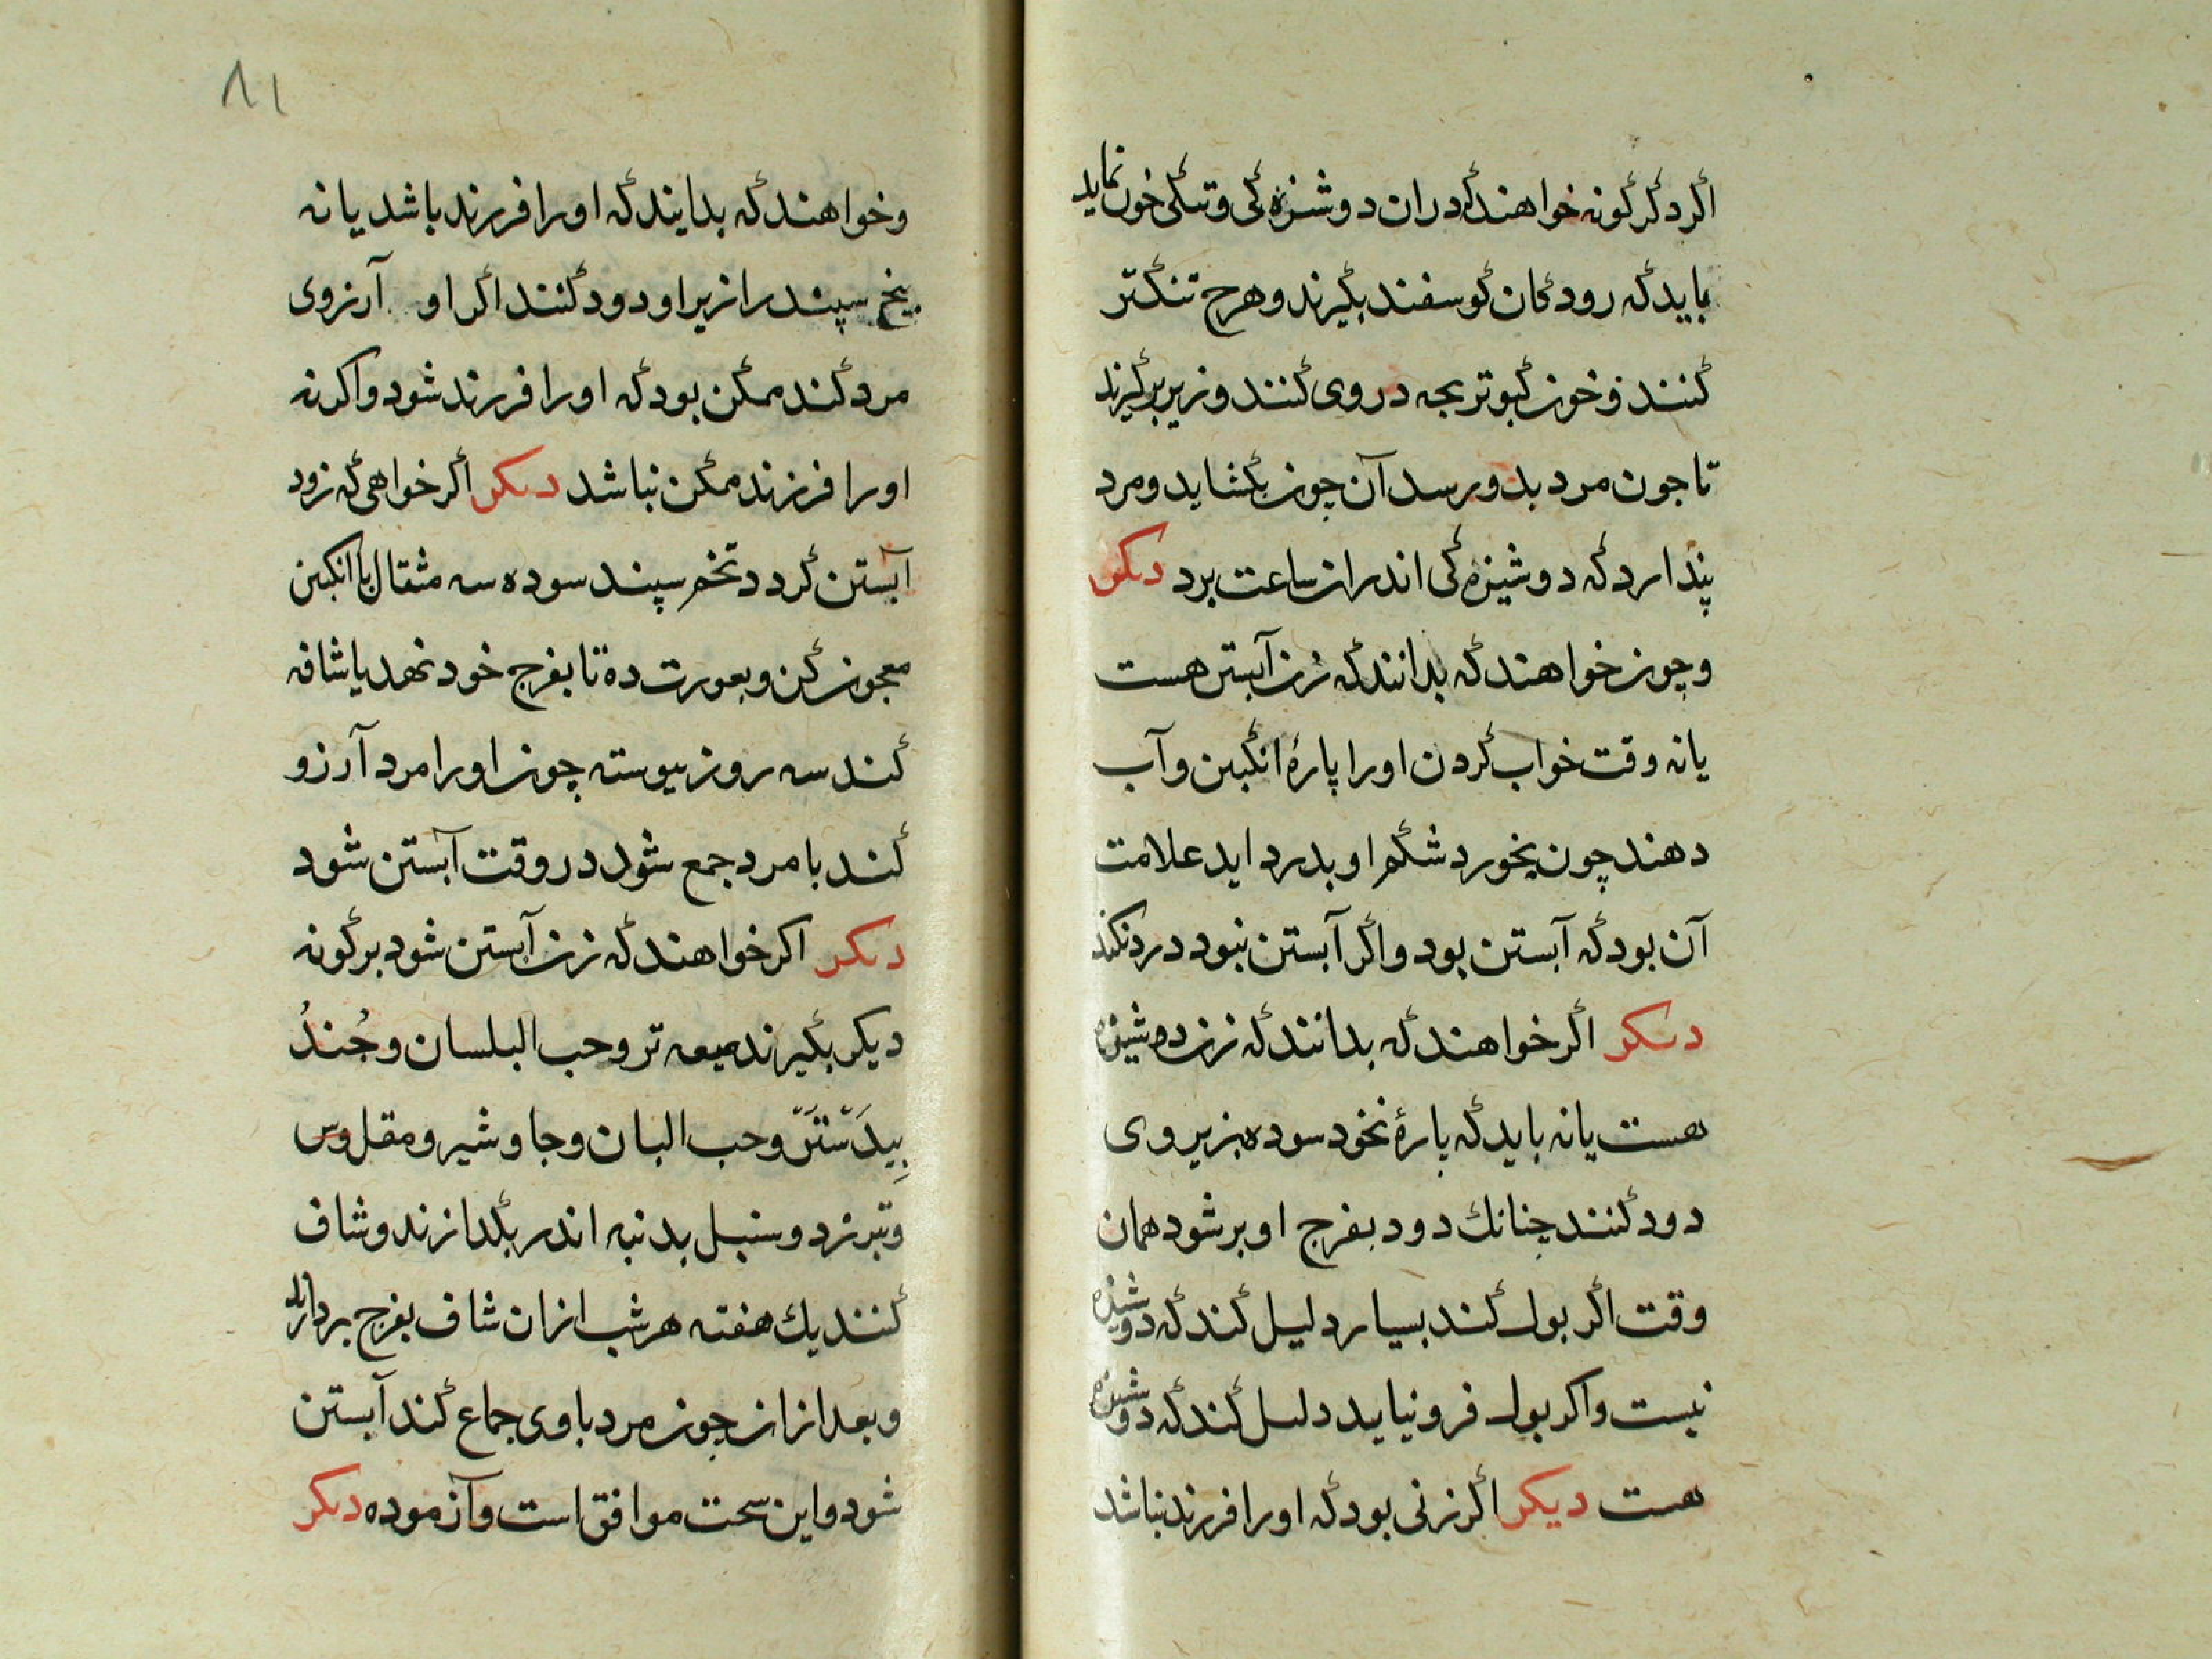 اگر دگر گونه خواهند که دران دوشیزه کی و تنکی خون نماید
باید که رودگان گوسفند بگیرند و هرچ تنگتر
کنند و خون کبوتر بچه در وی کنند و زیر برگیرند
تا جون مرد بدو رسد آن چون بگشاید و مرد
پندارد که دوشیزه کی اندران ساعت برد دیگر
و چون خواهند که بدانند که زن آبستن هست
یا نه وقت خواب کردن او را پارۀ انگبین و آب
دهند چون بخورد شکم او بدرد اید علامت
آن بود که آبستن بود و اگر آبستن نبود درد نکند
دیکر اگر خواهند که بدانند که زن دوشیزه
هست یا نه باید که پارۀ نخود سوده بزیر وی
دود کنند چنانك دود بفرج او بر شود همان
وقت اگر بول کند بسیار دلیل کند که دوشیزه
نیست و اکر بول فرو نیاید دلیل کند که دوشیزه
هست دیکر اگر زنی بود که او را فرزند نباشد
٨١
و خواهند که بدایند که او را فرزند باشد یا نه
بیخ سپند را زیر او دود کنند اگر او آرزوی
مرد کند ممکن بود که او را فرزند شود و اکر نه
او را فرزند ممکن نباشد دیکر اگر خواهی که زود
آبستن گردد تخم سپند سوده سه مثقال با انکبین
معجون کن و بعورت ده تا بفرج خود نهد یا شافه
کند سه روز پیوسته چون او را مرد آرزو
کند با مرد جمع شود در وقت آبستن شود
دیکر اکر خواهند که زن آبستن شود بر گونه
دیکر بگیرند میعه تر و حب البلسان و جُندُ
بِیدَسْتَرْ و حب البان و جاوشیر و مقل وس
و تبرزد و سنبل بدنبه اندر بگدازند و شاف
کنند یك هفته هر شب ازان شاف بفرج بردارد
و بعد ازان چون مرد با وی جماع کند آبستن
شود و این سخت موافق است و آزموده دیکر